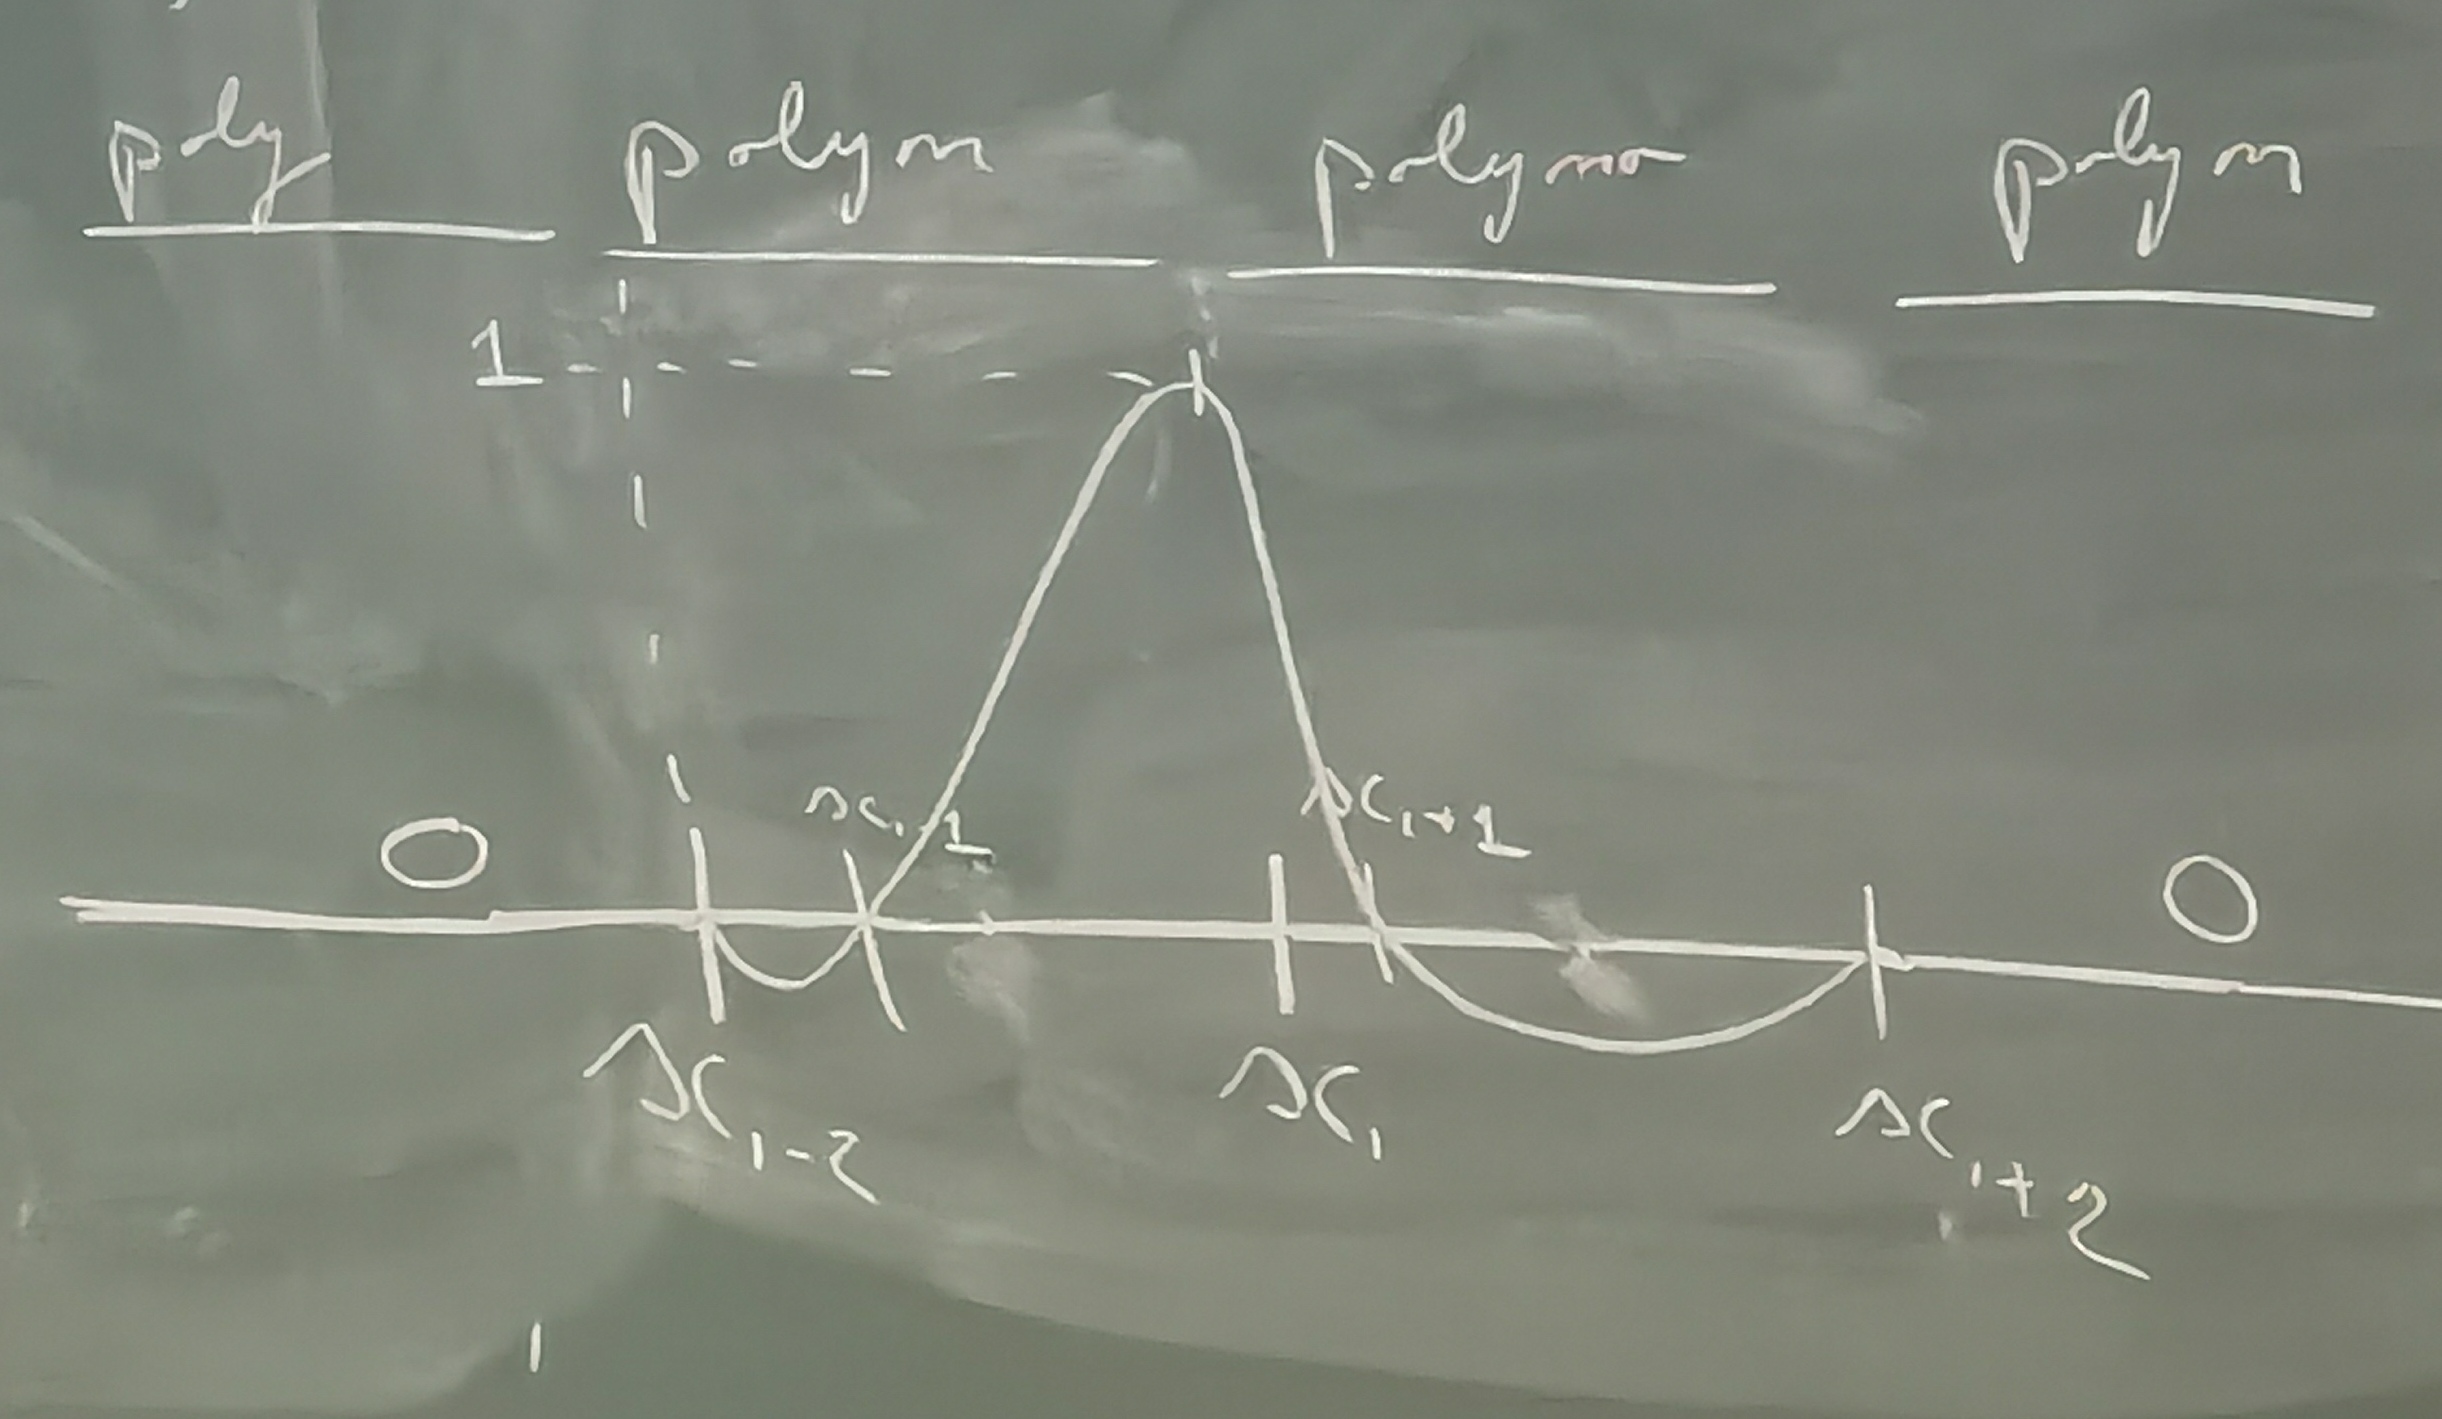 poly polyn polyno polyn
1
x_{i-1} x_{i+1}
0 0
x_{i-2} x_i x_{i+2}